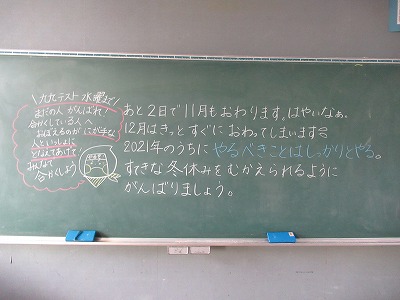 九九テスト 水曜まで
まだの人 がんばれ!
合かくしている人へ
おぼえるのが にが手な
人といっしょに
となえてあげて
みんなで
合かくしよう
あと2日で11月もおわります。はやいなぁ。
12月はきっと すぐに おわってしまいます
2021年のうちに やるべきことはしっかりとやる。
すてきな 冬休みを むかえられるように
がんばりましょう。